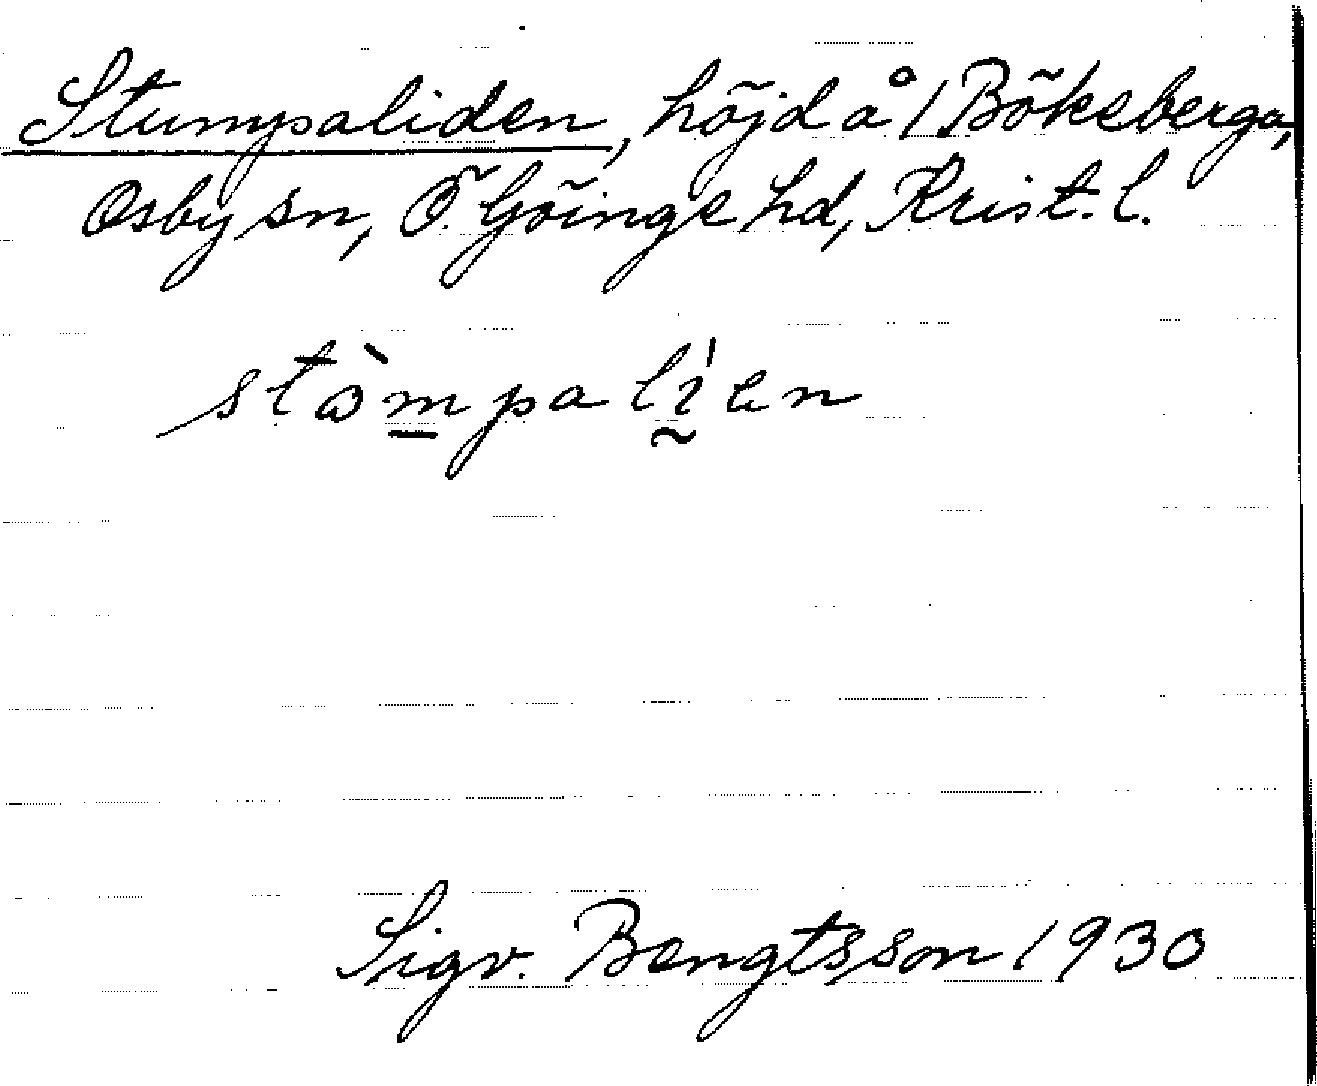 Stumpaliden, höjd å 1 Böksberga,
Osby sn, Ö. Göinge hd, Krist. l.
stòmpalíen
Sigv. Bengtsson 1930